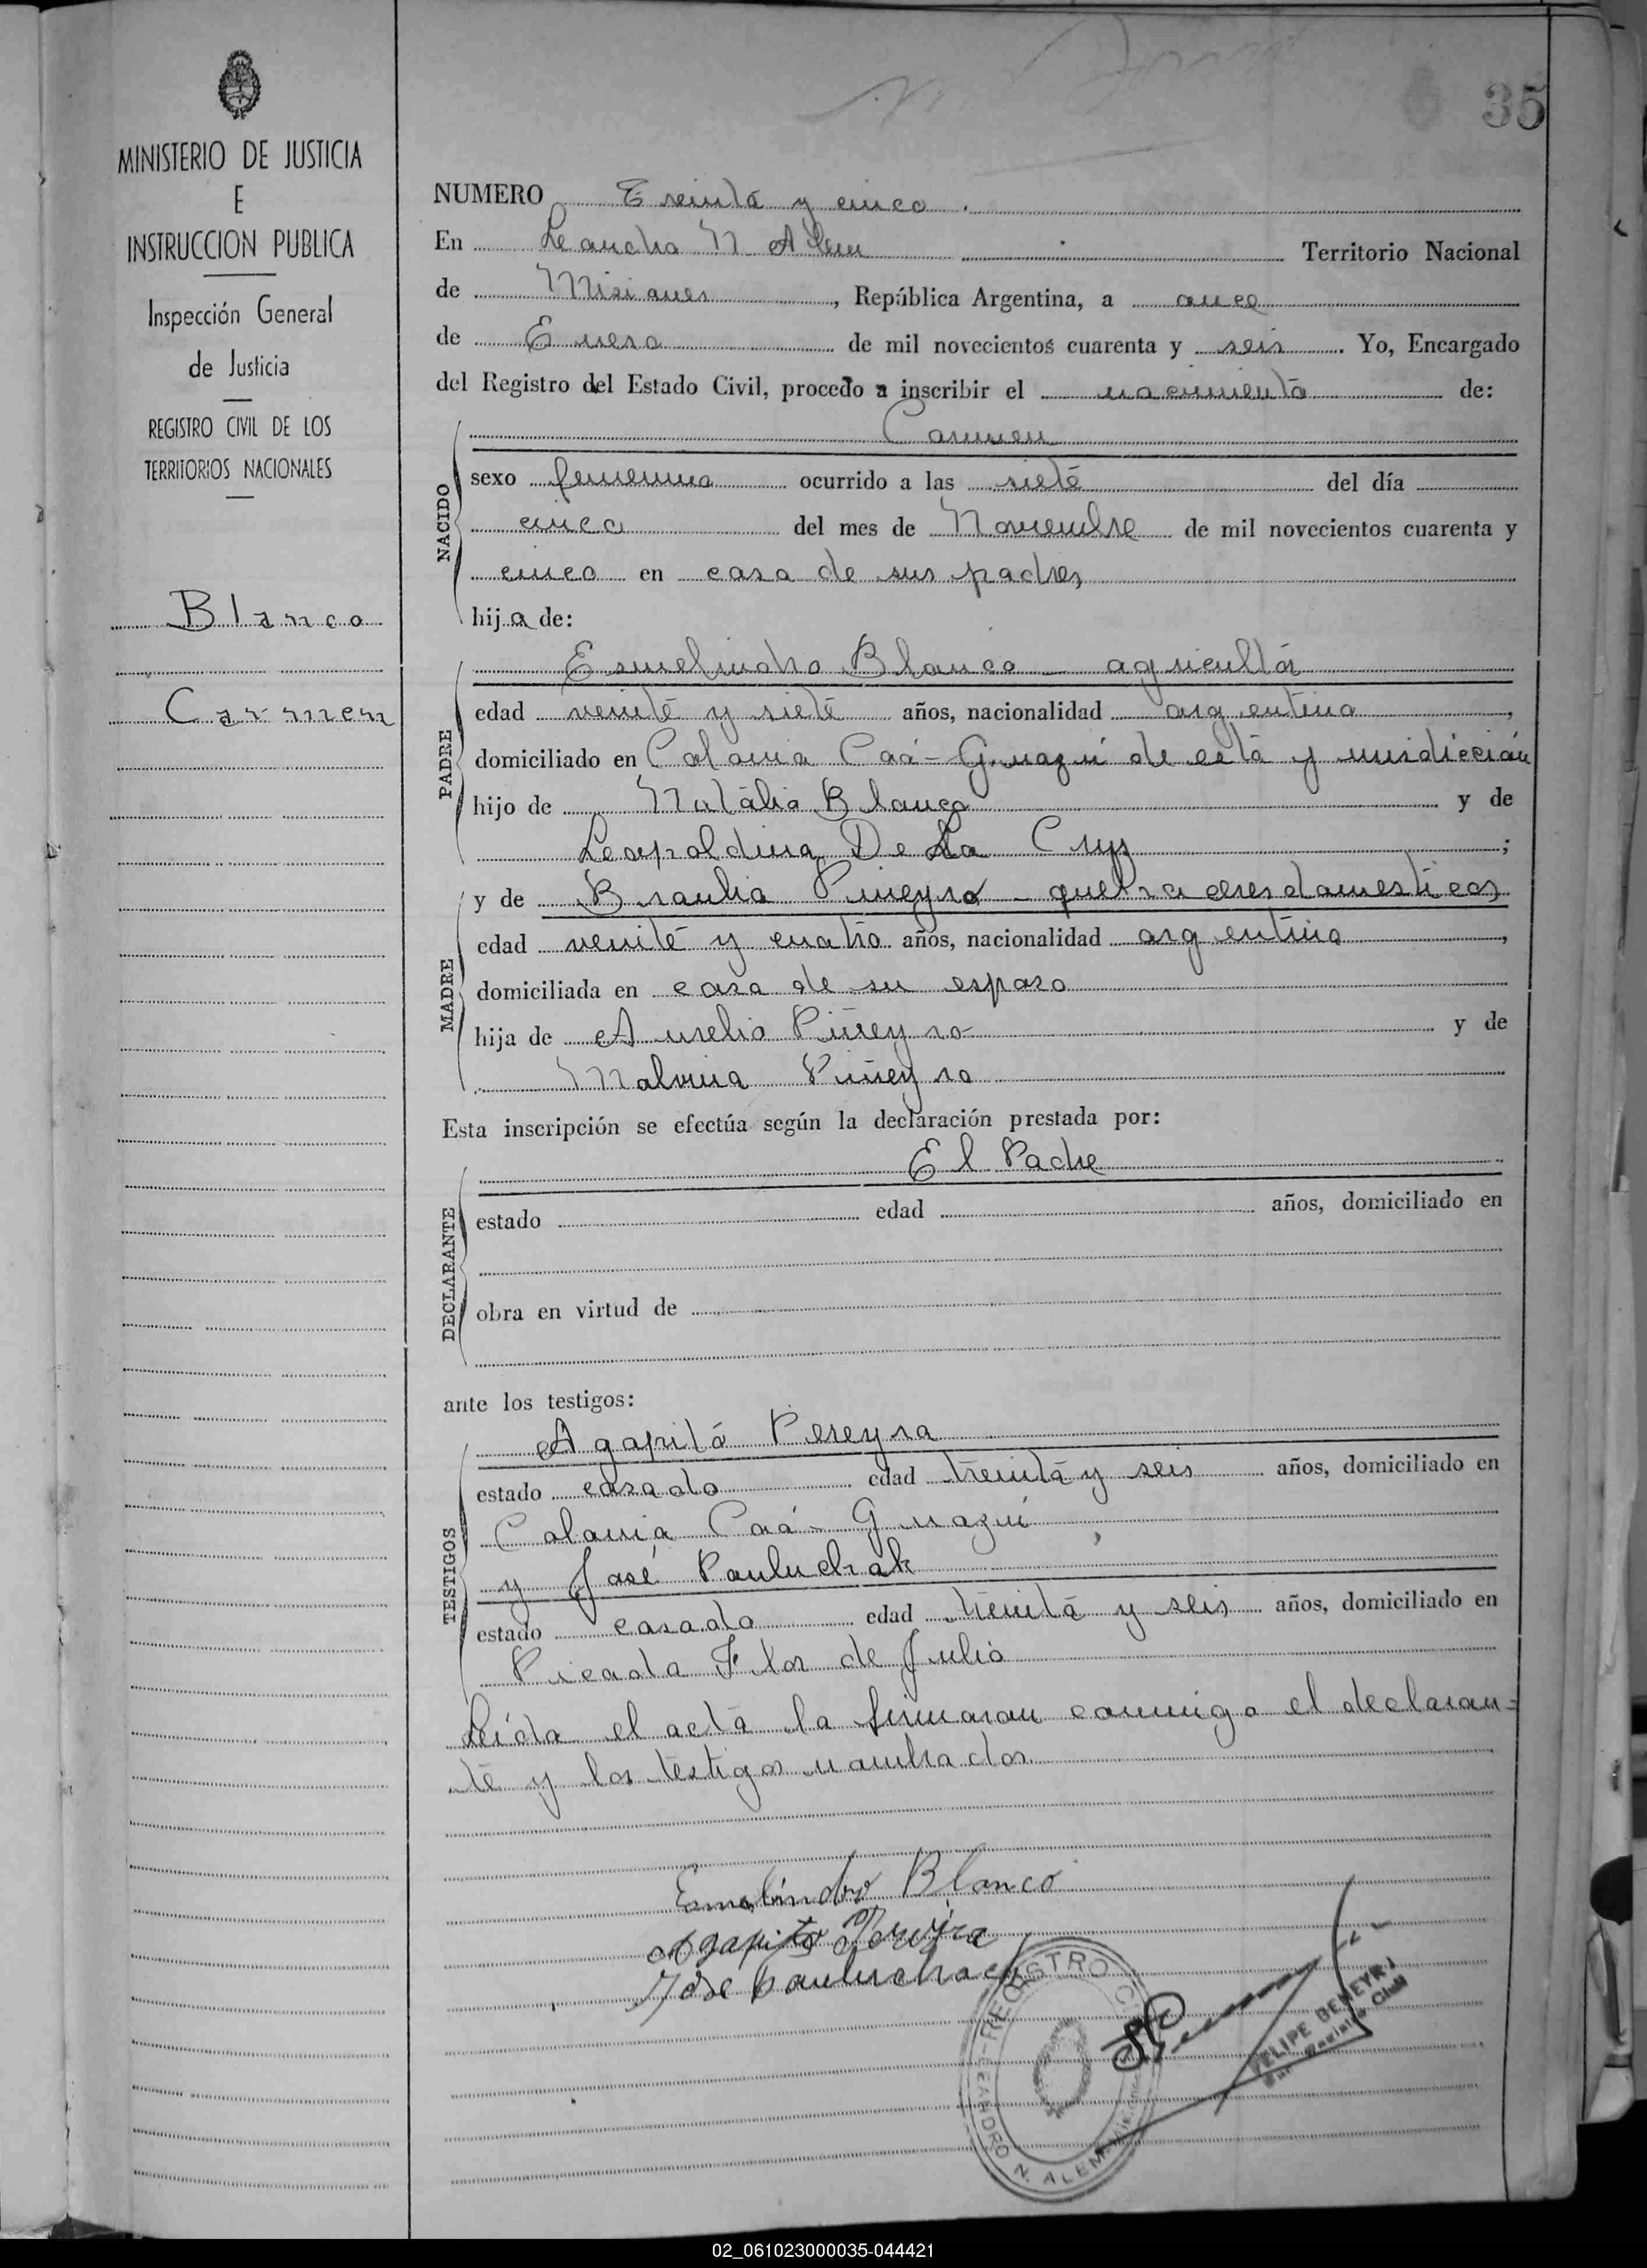 35
MINISTERIO DE JUSTICIA
E
INSTRUCCION PUBLICA
Inspección General
de Justicia
REGISTRO CIVIL DE LOS
TERRITORIOS NACIONALES
Blanco
Carmen
NUMERO Treinta y cinco.
En Leandro N Alem Territorio Nacional
de Misiones, República Argentina, a once
de Enero de mil novecientos cuarenta y seis. Yo, Encargado
del Registro del Estado Civil, procedo a inscribir el nacimiento de:
Carmen
NACIDO
sexo femenino ocurrido a las siete del día
cinco del mes de Noviembre de mil novecientos cuarenta y
cinco en casa de sus padres
hija de:
PADRE
Esmelindro Blanco - agricultor
edad veinte y siete años, nacionalidad argentina,
domiciliado en Colonia Caá-Guazú de esta y jurisdicción
hijo de Natalio Blanco y de
Leopoldina De La Cruz;
MADRE
y de Braulia Piñeyro - quehaceres domesticos
edad veinte y cuatro años, nacionalidad argentina,
domiciliada en casa de su esposo
hija de Aurelio Piñeyro y de
Malvina Piñeyro
Esta inscripción se efectúa según la declaración prestada por:
El Padre
DECLARANTE
estado edad años, domiciliado en
obra en virtud de
ante los testigos:
TESTIGOS
Agapito Pereyra
estado casado edad treinta y seis años, domiciliado en
Colonia Caá-Guazú,
y José Pauluchak
estado casado edad treinta y seis años, domiciliado en
Picada Flor de Julio
Leída el acta la firmaron conmigo el declaran=
te y los testigos nombrados
Esmelindro Blanco
Agapito Pereira
Jose Pauluchack
REGISTRO CIVIL
LEANDRO N. ALEM
FELIPE BENEYRJ
02_061023000035-044421